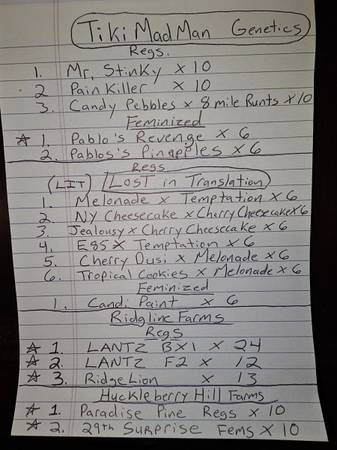 Tiki MadMan Genetics
Regs.
1. Mr. Stinky x 10
2 Pain Killer x 10
3. Candy Pebbles x 8 mile Runts x 10
Feminized
☆ 1. Pablo's Revenge x 6
2. Pablos's Pinapples x 6
Regs
(LIT) Lost in Translation
1. Melonade x Temptation x 6
2. NY Cheesecake x Cherry Cheesecake x 6
3. Jealousy x Cherry Cheesecake x 6
4. E85 x Temptation x 6
5. Cherry Dusi x Melonade x 6
6. Tropical Cookies x Melonade x 6
Feminized
1. Candi Paint x 6
Ridgline Farms
Regs
☆ 1. LANTZ BX1 x 24
☆ 2. LANTZ F2 x 12
☆ 3. RidgeLion x 13
Huckleberry Hill Farms
☆ 1. Paradise Pine Regs x 10
☆ 2. 29th Surprise Fems x 10